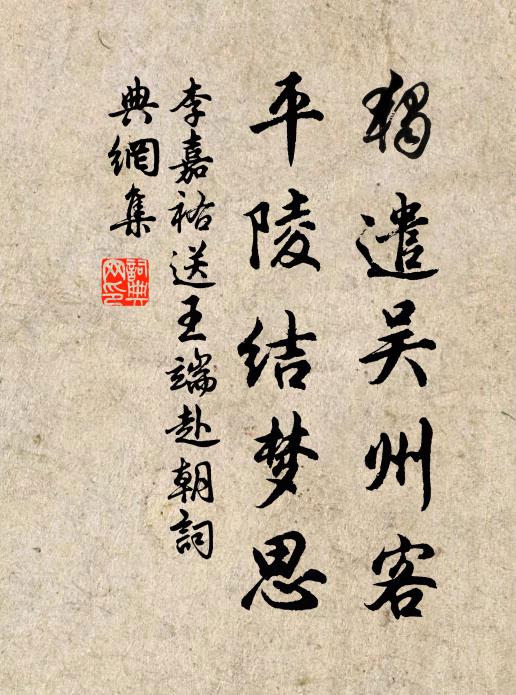 獨遣吴州客
平陵结梦思
李嘉祐送王端赴朝詞
典網集
詞典
网印